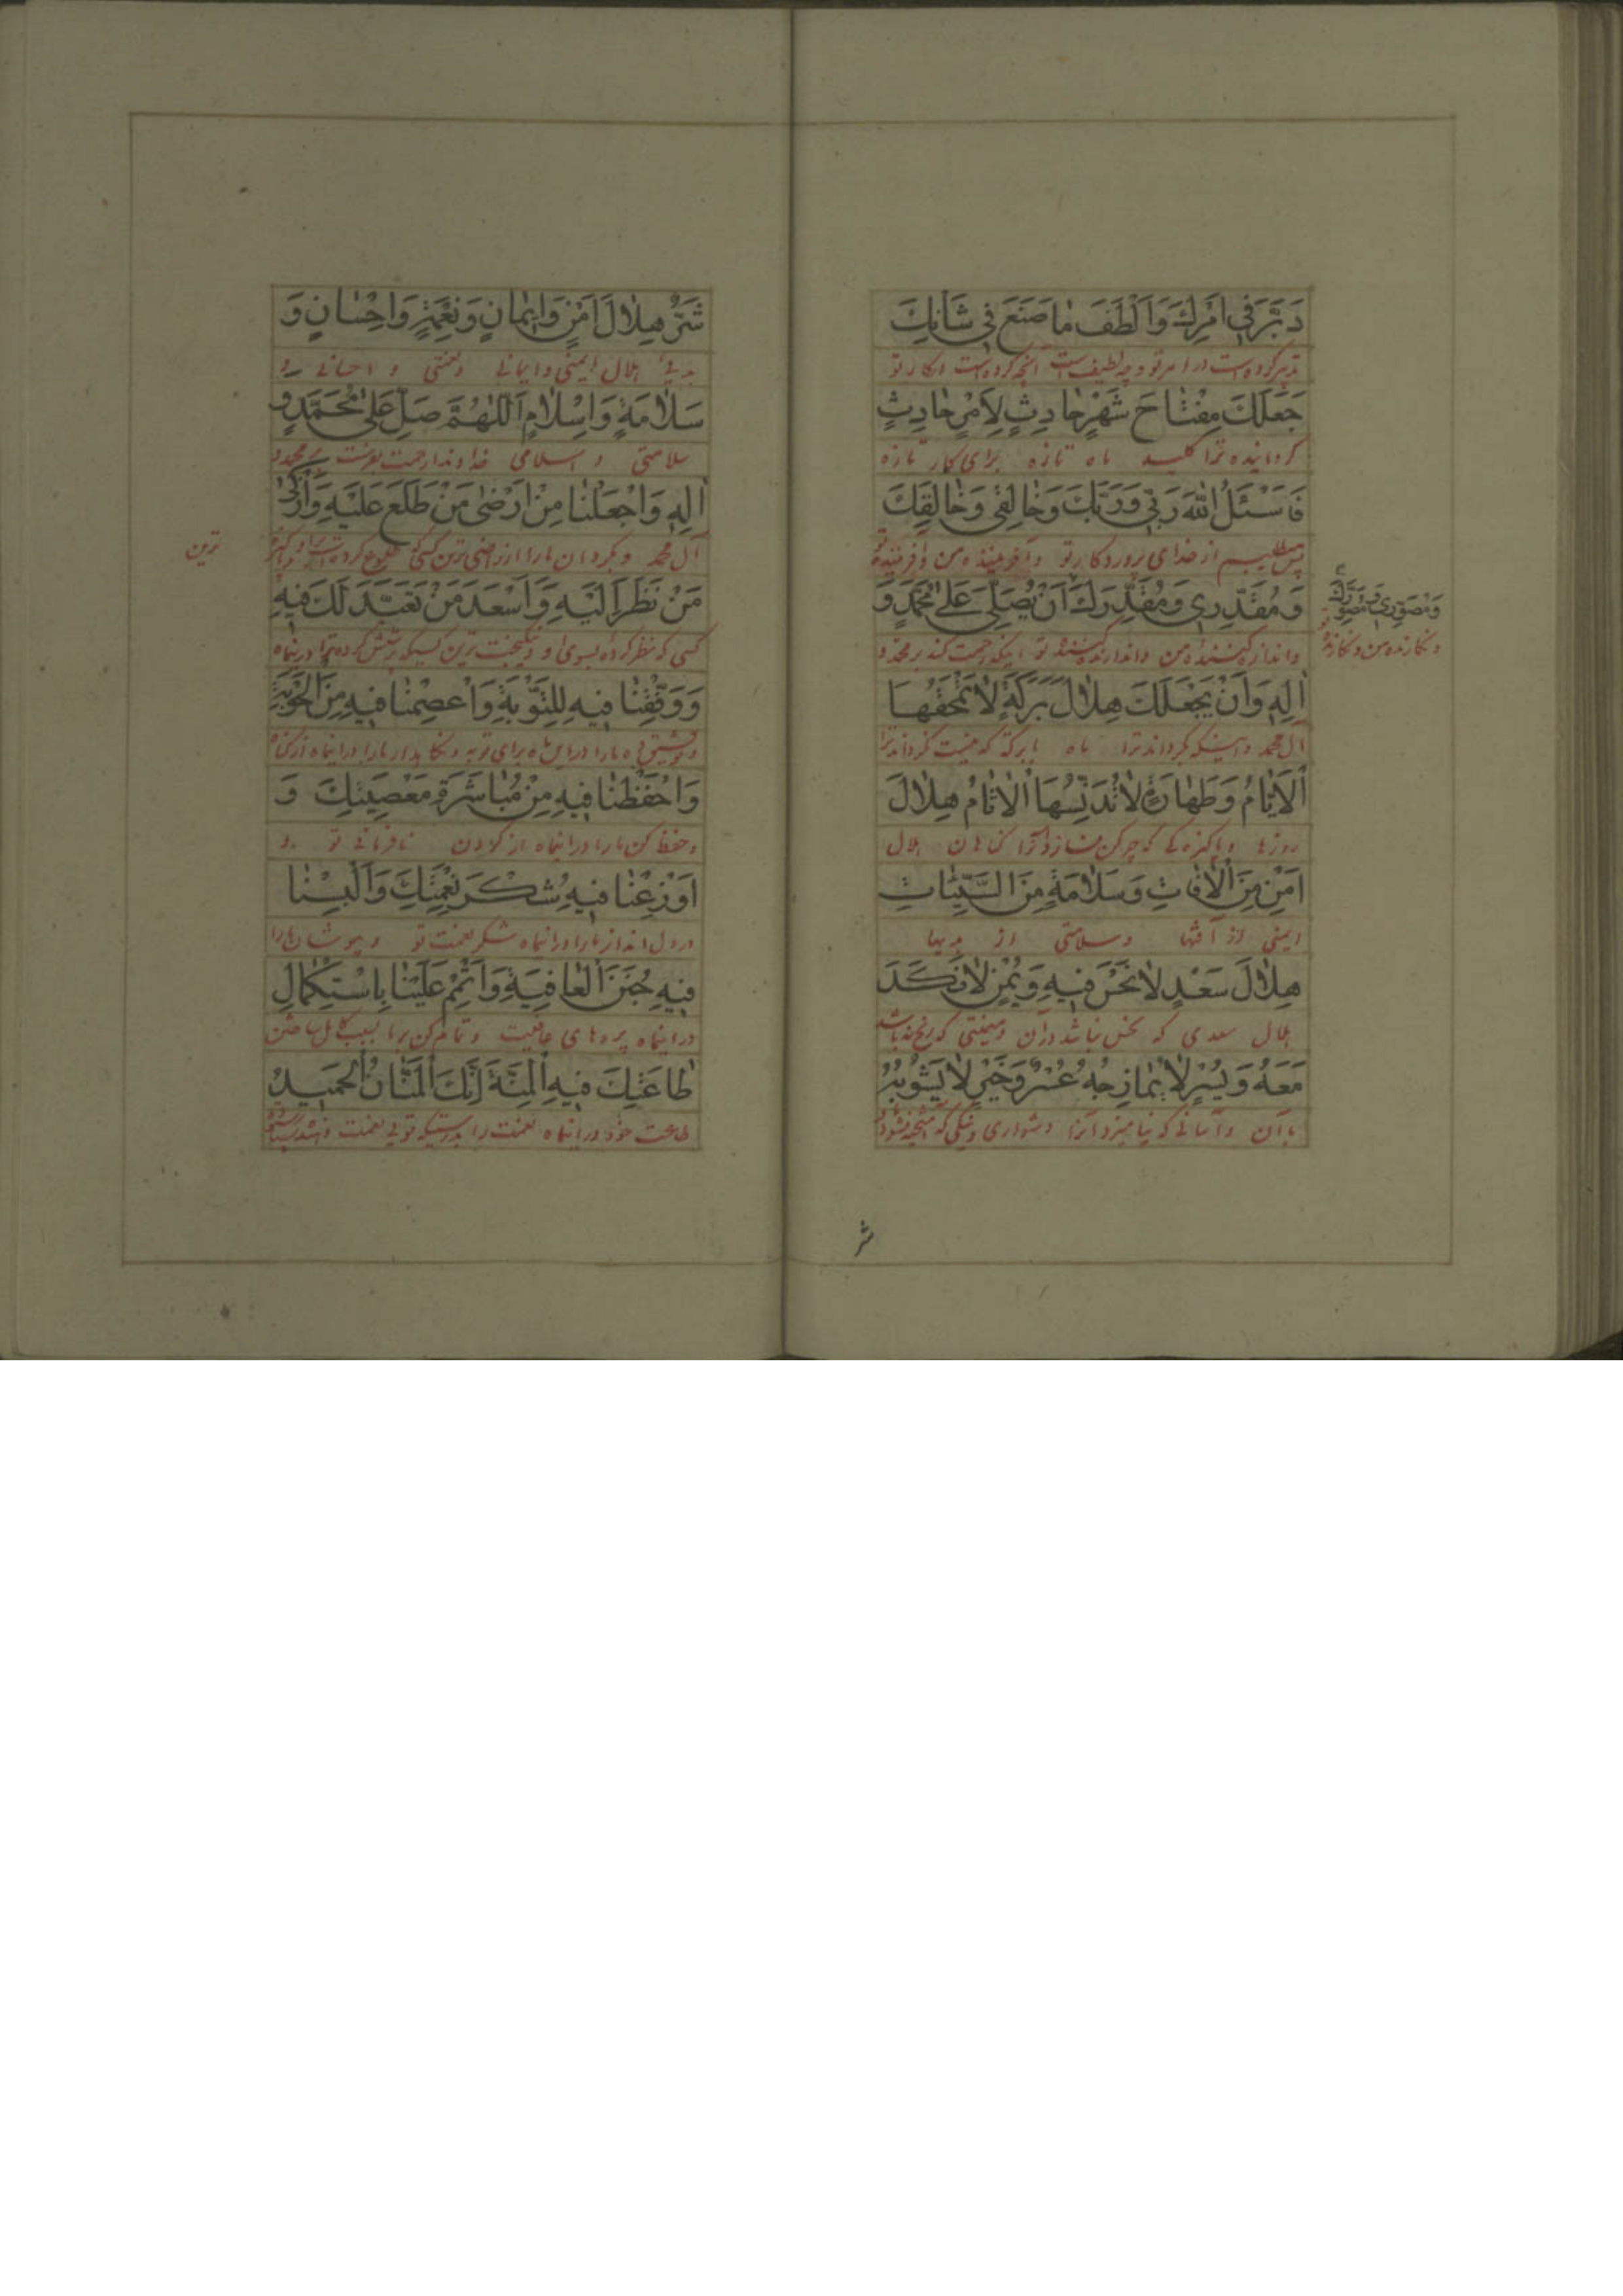 دَبَّرَ في اَمْرِكَ وَاَلْطَفَ مٰا صَنَعَ في شَأْنِكَ
تدبیر کرده است در امر تو و چه لطیف است آنچه کرده است در کار تو
جَعَلَكَ مِفْتٰاحَ شَهْرٍ حٰادِثٍ لِاَمْرٍ حٰادِثٍ
گردانیده ترا کلید ماه تازه برای کار تازه
فَاَسْئَلُ اللّٰهَ رَبّي وَرَبَّكَ وَخٰالِقي وَخٰالِقَكَ
پس میطلبم از خدای پروردکار تو و آفریننده من و آفریننده تو
وَمُقَدِّري وَمُقَدِّرَكَ اَنْ يُصَلِّيَ عَلىٰ مُحَمَّدٍ وَ
وَمُصَوِّري وَمُصَوِّرَكَ
و اندازه کننده من و اندازه کننده تو اینکه رحمت کند بر محمد و
و نکارنده من و نکارنده تو
اٰلِهِ وَاَنْ يَجْعَلَكَ هِلٰالَ بَرَكَةٍ لٰا تَمْحَقُهَا
آل محمد و اینکه بگرداند ترا ماه با برکة که نیست نگرداند آنرا
اَلْاَيّٰامُ وَطَهٰارَةٍ لٰا تُدَنِّسُهَا اْلاٰثٰامُ هِلٰالَ
روزها و پاکیزه که چرکن نسازد آنرا گناهان هلال
اَمْنٍ مِنَ اْلاٰفٰاتِ وَسَلٰامَةٍ مِنَ السَّيِّئٰاتِ
ایمنی از آفتها و سلامتی از بدیها
هِلٰالَ سَعْدٍ لٰا نَحْسَ فيهِ وَيُمْنٍ لٰا نَكَدَ
هلال سعدی که نحس نباشد در آن و میمنتی که رنج نباشد
مَعَهُ وَيُسْرٍ لٰا يُمٰازِجُهُ عُسْرٌ وَخَيْرٍ لٰا يَشُوبُهُ
با آن و آسانی که نیامیزد آنرا دشواری و نیکی که آمیخته نشود
شر
شَرٌّ هِلٰالَ اَمْنٍ وَايمٰانٍ وَنِعْمَةٍ وَاِحْسٰانٍ وَ
بدی هلال ایمنی و ایمانی و نعمتی و احسانی و
سَلٰامَةٍ وَاِسْلٰامٍ اَللّٰهُمَّ صَلِّ عَلىٰ مُحَمَّدٍ وَ
سلامتی و اسلامی خداوندا رحمت بفرست بر محمد و
اٰلِهِ وَاجْعَلْنٰا مِنْ اَرْضىٰ مَنْ طَلَعَ عَلَيْهِ وَاَزْكىٰ
آل محمد و بگردان ما را از راضی ترین کسی که طلوع کرده است بر او و پاکیزه
ترین
مَنْ نَظَرَ اِلَيْهِ وَاَسْعَدَ مَنْ تَعَبَّدَ لَكَ فيهِ
کسی که نظر کرده بسوی او و نیکبخت ترین کسیکه پرستش کرده ترا در اینماه
وَوَفِّقْنٰا فيهِ لِلتَّوْبَةِ وَاعْصِمْنٰا فيهِ مِنَ الْحَوْبَةِ
و توفیق ده ما را در این ماه برای توبه و نگاه دار ما را در اینماه از گناه
وَاحْفَظْنٰا فيهِ مِنْ مُبٰاشَرَةِ مَعْصِيَتِكَ وَ
و حفظ کن ما را در اینماه از کردن نافرمانی تو و
اَوْزِعْنٰا فيهِ شُكْرَ نِعْمَتِكَ وَاَلْبِسْنٰا
در دل انداز ما را در اینماه شکر نعمت تو و بپوشان ما را
فيهِ جُنَنَ الْعٰافِيَةِ وَاَتْمِمْ عَلَيْنٰا بِاسْتِكْمٰالِ
در اینماه پرده های عافیت و تمام کن بر ما بسبب کامل ساختن
طٰاعَتِكَ فيهِ الْمِنَّةَ اِنَّكَ الْمَنّٰانُ الْحَميدُ
طاعت خود در اینماه نعمت را بدرستیکه تویی نعمت دهنده ستوده